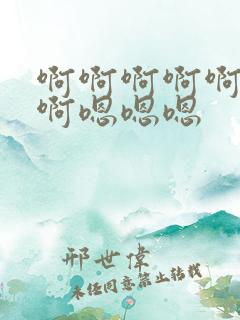 啊啊啊啊啊
啊嗯嗯嗯
邢世偉
未经同意禁止转载